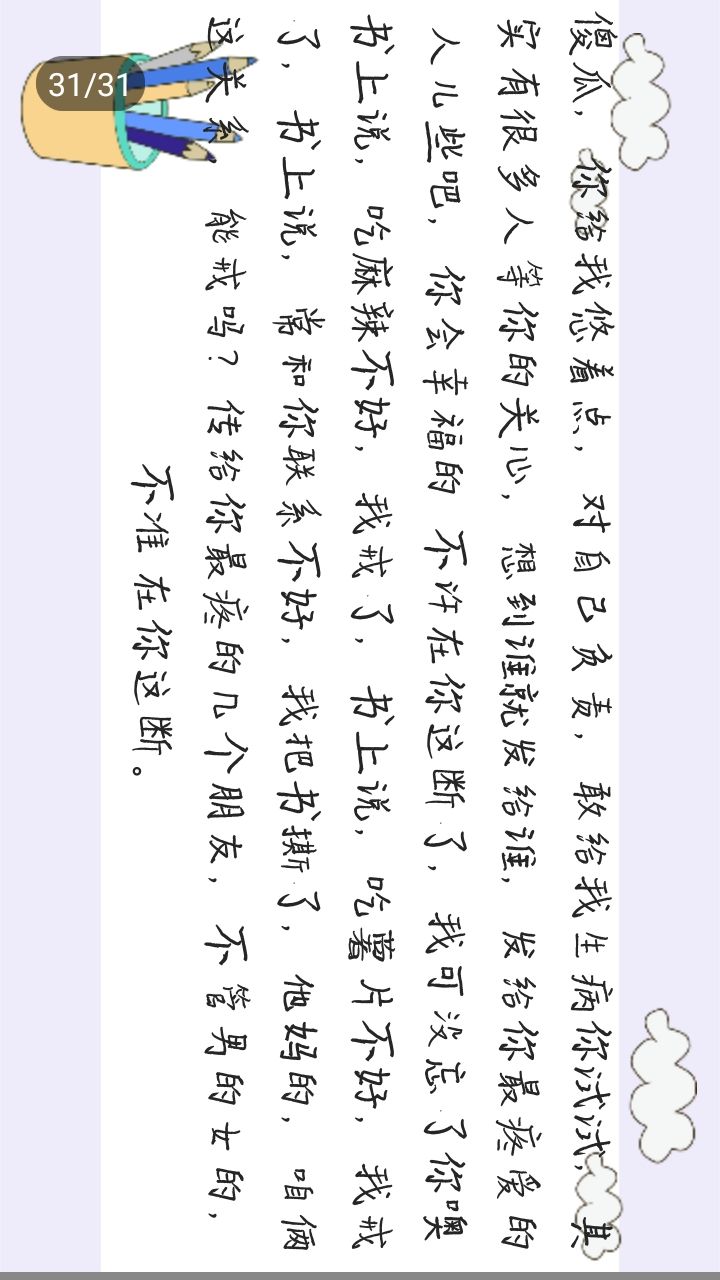 31/31
傻瓜，你给我悠着点，对自己负责，敢给我生病你试试，其
实有很多人等你的关心，想到谁就发给谁，发给你最疼爱的
人儿些吧，你会幸福的 不许在你这断了，我可没忘了你噢
书上说，吃麻辣不好，我戒了，书上说，吃薯片不好，我戒
了，书上说，常和你联系不好，我把书撕了，他妈的，咱俩
这关系，能戒吗？传给你最疼的几个朋友，不管男的女的，
不准在你这断。